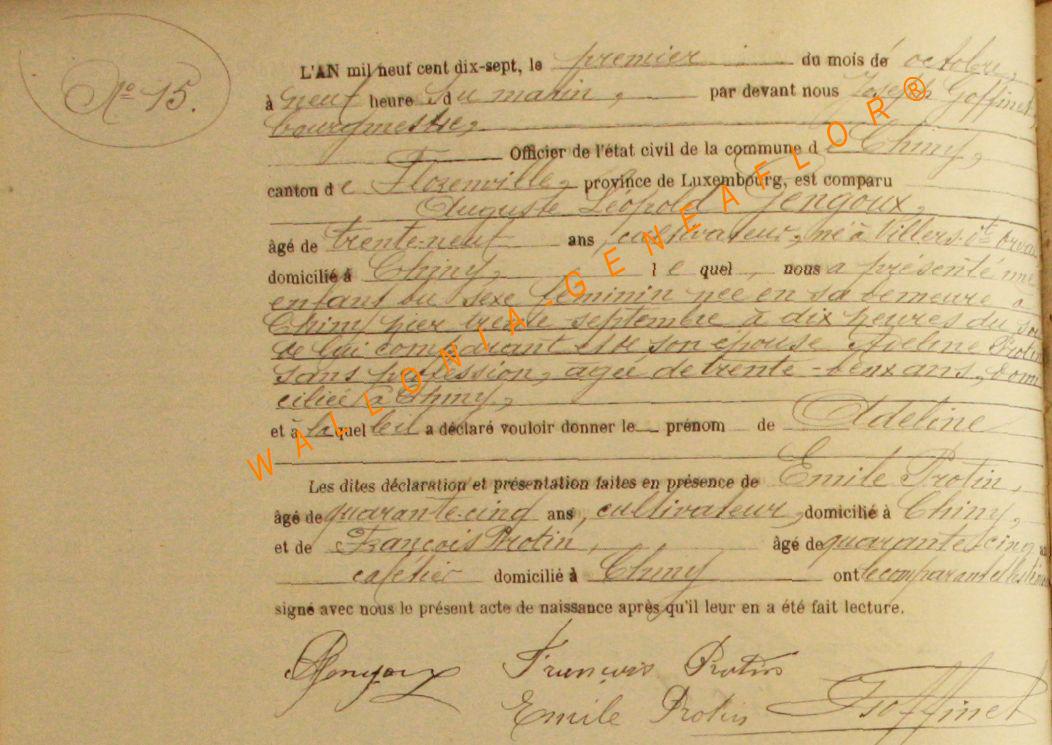 N° 15.
L'AN mil neuf cent dix-sept, le premier du mois de octobre,
à neuf heures du matin, par devant nous Joseph Goffinet,
bourgmestre,
Officier de l'état civil de la commune de Chiny,
canton de Florenville, province de Luxembourg, est comparu
Auguste Léopold Gengoux,
âgé de trente-neuf ans, cultivateur, né à Villers dt Orval
domicilié à Chiny, lequel, nous a présenté une
enfant du sexe féminin née en sa demeure à
Chiny hier trente septembre à dix heures du soir
de lui comparant et de son épouse Adeline Protin
sans profession, agée de trente-deux ans, domi
ciliée à Chiny,
et à laquelle il a déclaré vouloir donner le prénom de Adeline
Les dites déclaration et présentation faites en présence de Emile Protin,
âgé de quarante-cinq ans, cultivateur, domicilié à Chiny,
et de François Protin, âgé de quarante-cinq
cafétier domicilié à Chiny ont le comparant et les
signé avec nous le présent acte de naissance après qu'il leur en a été fait lecture.
Gengoux François Protin
Emile Protin Goffinet
WALLONIA-GENEAFLOR®